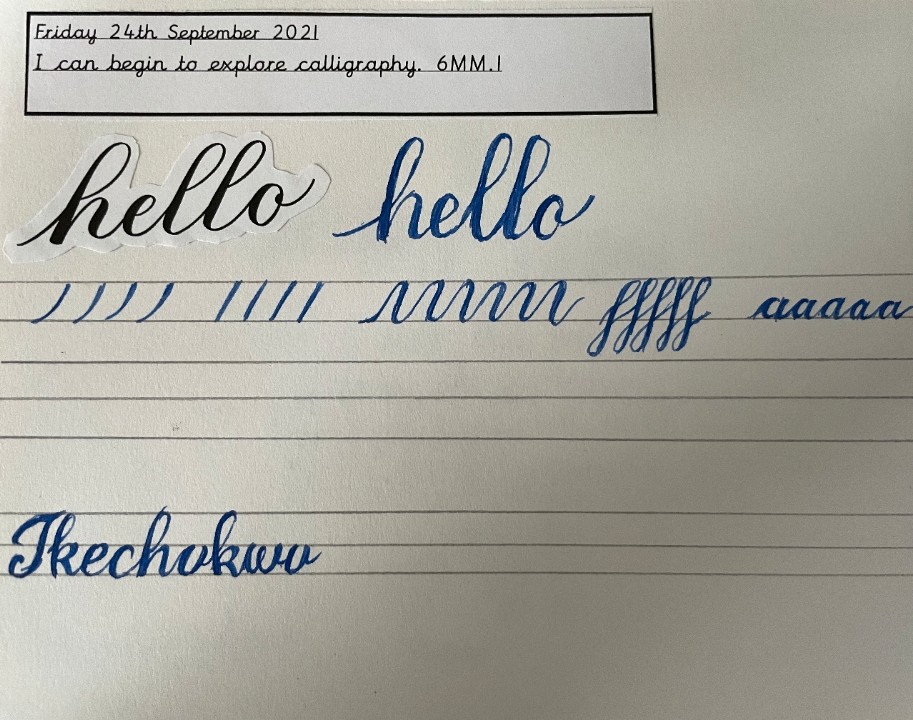 Friday 24th September 2021
I can begin to explore calligraphy. 6MM.1
hello hello
fffff aaaaa
Ikechukwu